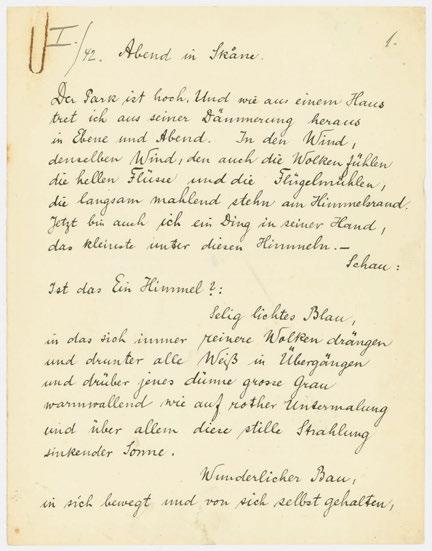 I./42. Abend in Skåne. 1.
Der Park ist hoch. Und wie aus einem Haus
tret ich aus seiner Dämmerung heraus
in Ebene und Abend. In den Wind,
denselben Wind, den auch die Wolken fühlen
die hellen Flüsse und die Flügelmühlen,
die langsam mahlend stehn am Himmelsrand.
Jetzt bin auch ich ein Ding in seiner Hand,
das kleinste unter diesen Himmeln. –
Schau:
Ist das Ein Himmel?:
Selig lichtes Blau,
in das sich immer reinere Wolken drängen
und drunter alle Weiß in Übergängen
und drüber jenes dünne grosse Grau
warmwallend wie auf rother Untermalung
und über allem diese stille Strahlung
sinkender Sonne.
Wunderlicher Bau,
in sich bewegt und von sich selbst gehalten,